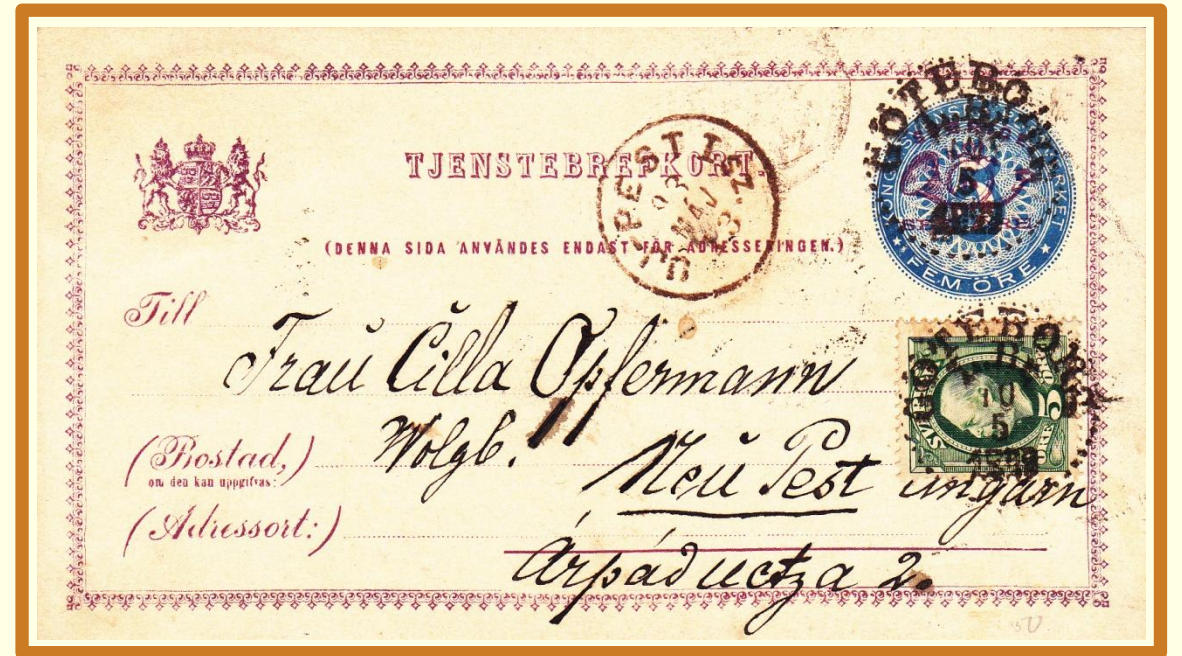 TJENSTEBREFKORT.
(DENNA SIDA ANVÄNDES ENDAST FÖR ADRESSERINGEN.)
UJPEST
MAJ
GÖTEBORG
5
FEM ÖRE
Till Frau Cilla Opfermann
(Bostad,) Wolgb.
om den kan uppgifvas:
Neu Pest Ungarn
(Adressort:)
Árpád uctza 2.
GÖTEBORG
10
5